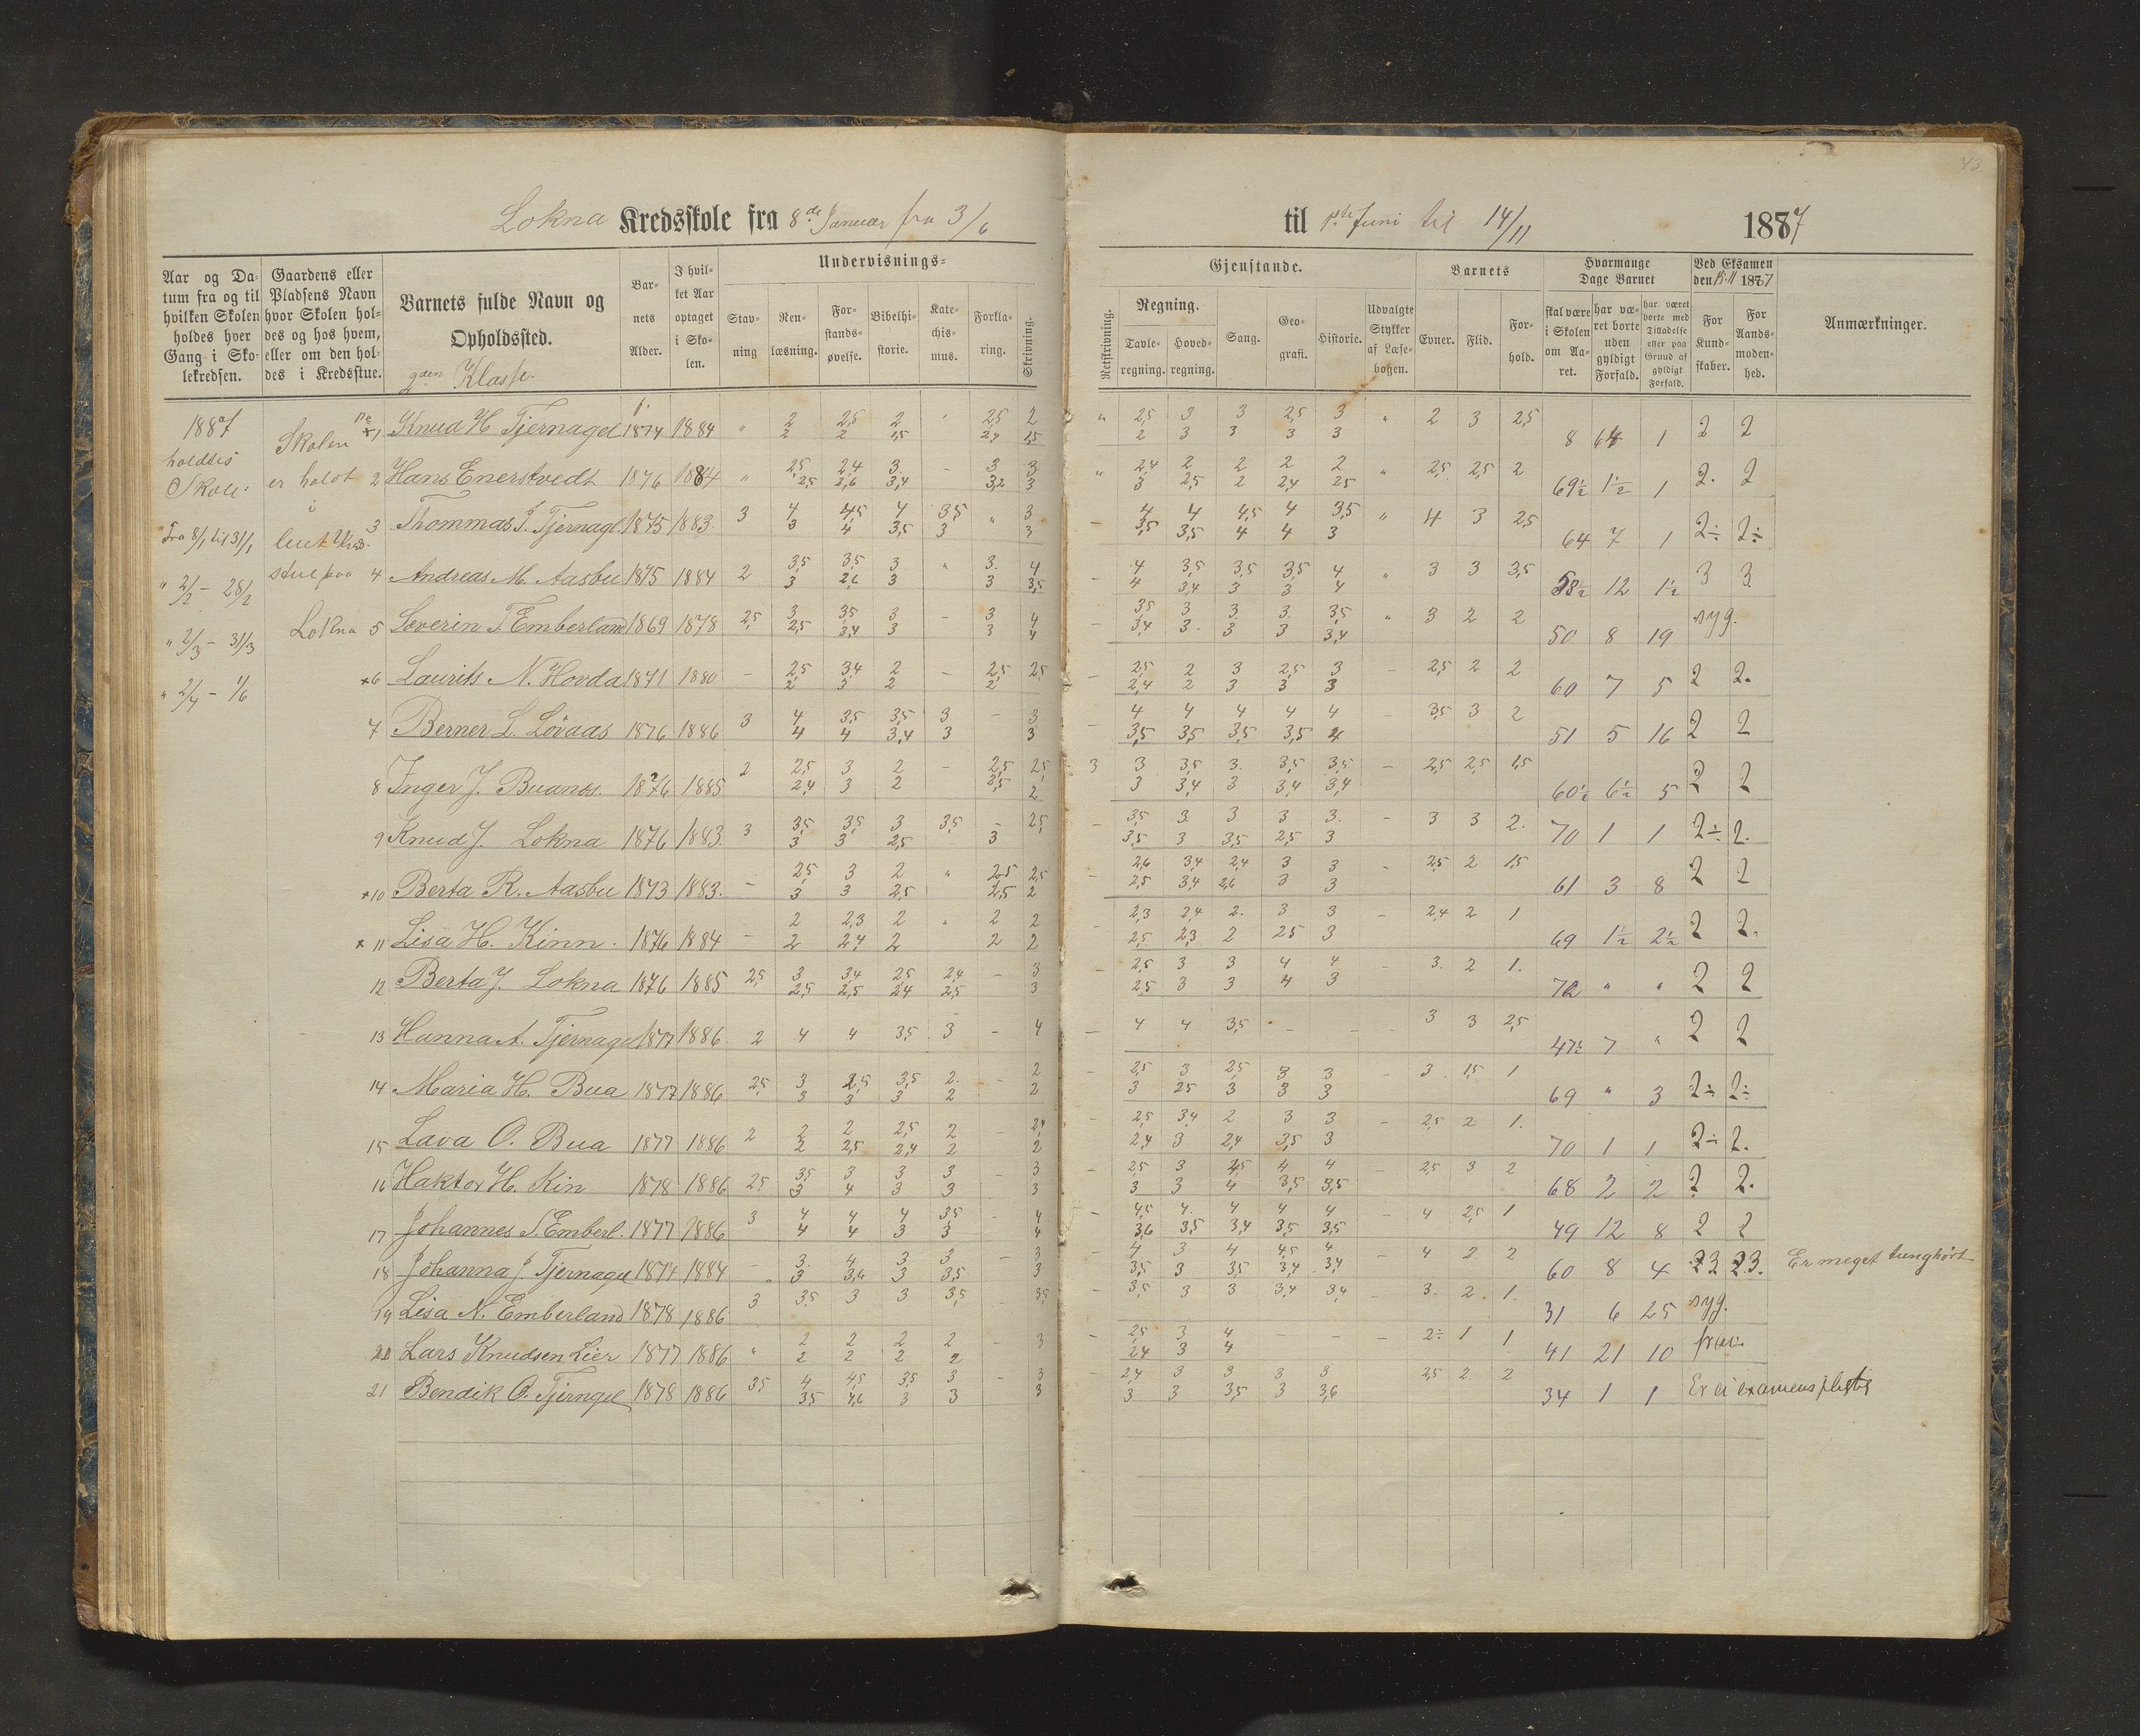 43
Lokna Kredsskole fra 8de Januar fra 3/6 til 1ste Juni til 14/11 1887
Aar og Datum fra og til hvilken Skolen holdes hver Gang i Skolekredsen.
Gaardens eller Pladsens Navn hvor Skolen holdes og hos hvem, eller om den holdes i Kredsstue.
Barnets fulde Navn og Opholdssted.
Klasse.
Barnets Alder.
I hvilket Aar optaget i Skolen.
Undervisnings-
Stavning
Renlæsning.
Forstandsøvelse.
Bibelhistorie.
Katechismus.
Forklaring.
Skrivning.
Gjenstande.
Retskrivning.
Regning.
Tavleregning.
Hovedregning.
Sang.
Geografi.
Historie.
Udvalgte Stykker af Læsebogen.
Barnets
Evner.
Flid.
Forhold.
Hvormange Dage Barnet
skal være i Skolen om Aaret.
har været borte uden gyldigt Forfald.
har været borte med Tilladelse eller paa Grund af gyldigt Forfald.
Ved Eksamen den 15-11 1887
For Kundskaber.
For Aandsmodenhed.
Anmærkninger.
1887
holdtes
Skole.
Fra 8/1 til 31/1
" 2/2 - 28/2
" 2/3 - 31/3
" 2/4 - 1/6
Skolen
er holdt
i
stue paa
Lokna
1 Knud H Tjernagel 1874 1884 " 2 2,5 2 " 2,5 2 " 2,5 3 3 2,5 3 " 2 3 2,5
2 2 1,5 2,4 1,5 2 3 3 3 3 8 64 1 2 2
2 Hans Enerstvedt 1876 1884 " 2,5 2,4 3. - 3 3 " 2,4 2 2 2 2 " 2,5 2,5 2
2,5 2,6 3,4 3,2 3 3 2,5 2 2,4 2,5 69½ 1½ 1 2. 2
3 Thommas J. Tjernagl. 1875 1883. 3 4 4,5 4 3,5 " 3 4 4 4,5 4 3,5 " 4 3 2,5
3 4 3,5 3 3 3,5 3,5 4 4 3 64 7 1 2÷ 2÷
4 Andreas M. Aasbu 1875 1884 2 3,5 3,5 3 " 3. 4 4 3,5 3,5 3,5 4 " 3 3 3,5
3 2,6 3 3 3,5 - 4 3,4 3 3 4 58½ 12 1½ 3 3
5 Severin T. Emberland 1869 1878 2,5 3 3,5 3 - 3 4 3,5 3 3. 3. 3,5 " 3 2 2
2,5 3,4 3 3 4 - 3,4 3. 3 3 3,4 50 8 19 syg.
×6 Laurits N. Hovda 1871 1880 - 2,5 3,4 2 - 2,5 2,5 2,5 2 3 2,5 3 - 2,5 2 2
2 3 2 2 - 2,4 2 3 3 3 60 7 5 2 2.
7 Berner L. Lövaas 1876 1886 3 4 3,5 3,5 3 - 3 4 4 4 4 4 - 3,5 3 2
4 4 3,4 3 3 - 3,5 3,5 3,5 3,5 4 51 5 16 2 2
8 Inger J. Buanæs. 1876 1885 2 2,5 3 2 - 2,5 2,5 3 3 3,5 3. 3,5 3,5 - 2,5 2,5 1,5
2,4 3 2 2,5 2 3 3,4 3 3,4 3,4 60½ 6½ 5 2 2
9 Knud J. Lokna 1876 1883. 3 3,5 3,5 3 3,5 - 2,5 - 3,5 3 3 3 3. - 3 3 2.
3 3 2,5 3 3,5 3 3,5 2,5 3 70 1 1 2÷ 2.
×10 Berta R. Aasbu 1873 1883. - 2,5 3 2 " 2,5 2,5 2,6 3,4 2,4 3 3 - 2,5 2 1,5
3 3 2,5 2,5 2 - 2,5 3,4 2,6 3 3 61 3 8 2 2
× 11 Lisa H. Kinn. 1876 1884 - 2 2,3 2 " 2 2 2,3 2,4 2. 3 3 - 2,4 2 1
2 2,4 2 2 2 - 2,5 2,3 2 2,5 3 69 1½ 2½ 2 2.
12 Berta J. Lokna 1876 1885 2,5 3 3,4 2,5 2,4 - 3 - 2,5 3 3 4 4 - 3. 2 1.
2,5 2,5 2,4 2,5 3 2,5 3 3 4 3 72 " " 2 2
13 Hanna A. Tjernagel 1877 1886 2 4 4 3,5 3 - 4 - 4 4 3,5 - - - 3 3 2,5
47½ 7 " 2 2
14 Maria H. Bua 1877 1886 2,5 3 2,5 3,5 2. - 2 - 2,5 3 2,5 3 3 - 3 1,5 1
3 3 3 2 2 3 2,5 3 3 3 69 " 3 2÷ 2÷
15 Lava O. Bua 1877 1886 2 2 2 2,5 2 - 2,4 - 2,5 3,4 2 3 3 - 2,5 2 1.
2 2,5 2,4 2 2 2,4 3 2,4 3,5 3 70 1 1 2÷ 2.
16 Haktor H. Kin 1878 1886 2,5 3,5 3 3 3 - 3 - 2,5 3 3,5 4 4 - 2,5 3 2
3 4 3 3 3 3 3 4 3,5 3,5 68 2 2 2 2.
17 Johannes S. Emberl. 1877 1886 3 4 4 4 3,5 - 4 - 4,5 4. 4 4 4 - 4 2,5 1
4 4 3 3 4 3,6 3,5 3,4 3,5 3,5 49 12 8 2 2
18 Johanna J. Tjernagel 1874 1884 - 3. 4 3 3 - 3 - 4 3 4 4,5 4 - 4 2 2
3 3,6 3 3,5 3 3,5 3 3,5 3,4 3,4 60 8 4 3 3. Er meget tunghørt
19 Lisa N. Emberland 1878 1886 3 3,5 3 3 3,5 - 3,5 - 3,5 3 3 3,4 3,4 - 3. 2. 1.
31 6 25 syg.
20 Lars Knudsen Lier 1877 1886 " 2 2 2 2 - 3 - 2,5 3 4 - - - 2÷ 1 1
2 2 2 2 2,4 3 4 41 21 10
21 Bendik O. Tjerngel 1878 1886 3,5 4 4,5 3,5 3 - 3 - 2,4 3 3 3 3 2,5 2 2
3,5 4,6 3 3 3 3 3 3,5 3 3,6 34 1 1 Er ei examenspligtig